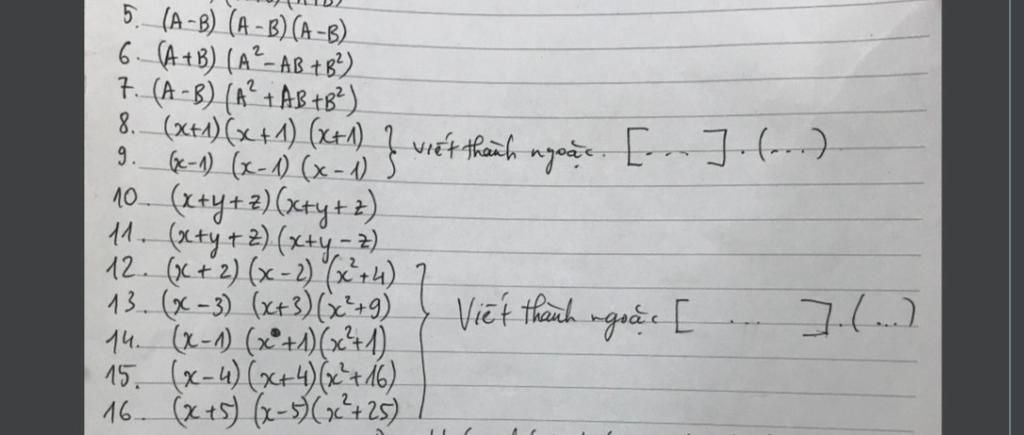 5. (A-B) (A-B)(A-B)
6. (A+B) (A²-AB+B²)
7. (A-B) (A²+AB+B²)
8. (x+1)(x+1) (x+1)
9. (x-1) (x-1) (x-1)
} viết thành ngoặc. [....].(...)
10. (x+y+z)(x+y+z)
11. (x+y+z)(x+y-z)
12. (x+2)(x-2)(x²+4)
13. (x-3) (x+3)(x²+9)
14. (x-1) (x+1)(x²+1)
15. (x-4)(x+4)(x²+16)
16. (x+5) (x-5)(x²+25)
} Viết thành ngoặc [ ... ].(...)